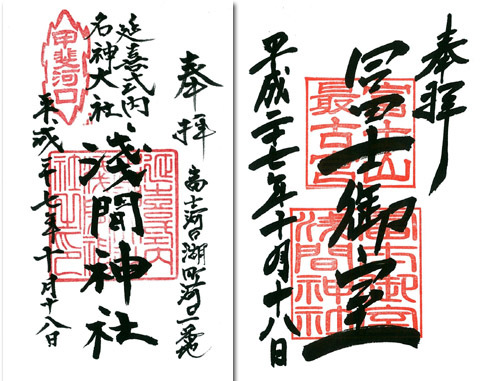 奉拝
富士河口湖町河口一番地
延喜式内
名神大社
淺間神社
甲斐河口
平成廿七年十月十八日
奉拝
冨士御室
富士山
最古宮
冨士御室
浅間神社
平成二十七年十月十八日